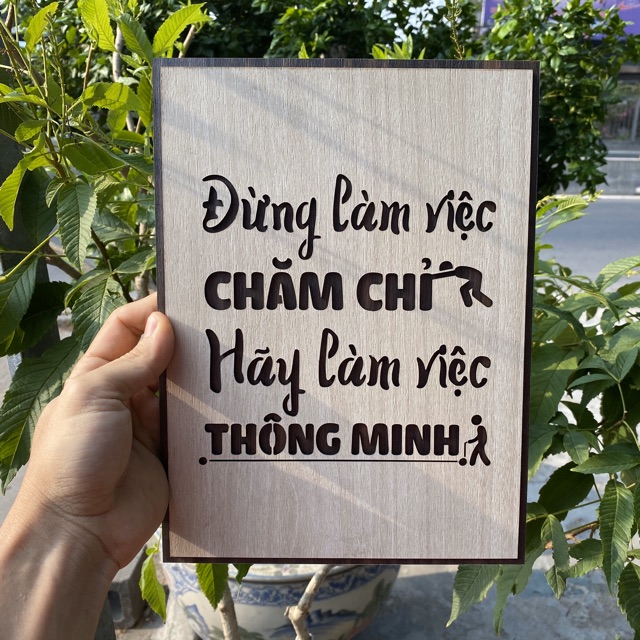 Đừng làm việc
CHĂM CHỈ
Hãy làm việc
THÔNG MINH